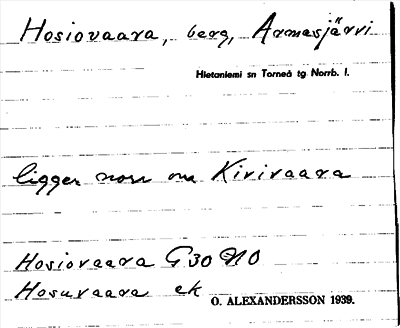 Hosiovaara, berg, Armasjärvi
Hietaniemi sn Torneå tg Norrb. l.
ligger norr om Kivivaara
Hosiovaara G30 NO
Hosuvaara ek
O. ALEXANDERSSON 1939.